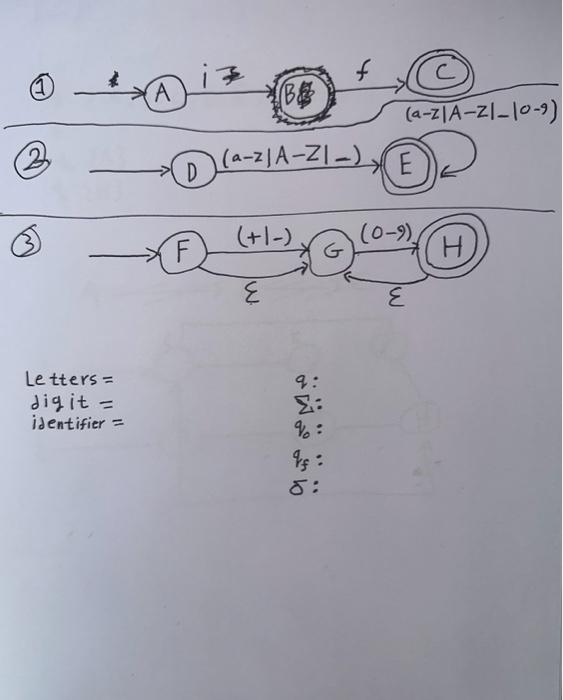 ① A i B f C
(a-z|A-Z|_|0-9)
② D (a-z|A-Z|_) E
③ F (+|-) G (0-9) H
ε ε
Letters =
digit =
identifier =
q:
Σ:
q₀:
q_f:
δ: